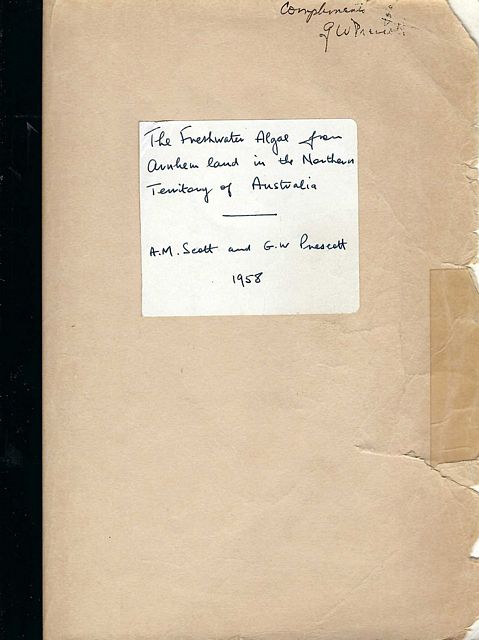 Compliments
G W Prescott
The Freshwater Algae from
Arnhem land in the Northern
Territory of Australia
A.M. Scott and G.W Prescott
1958